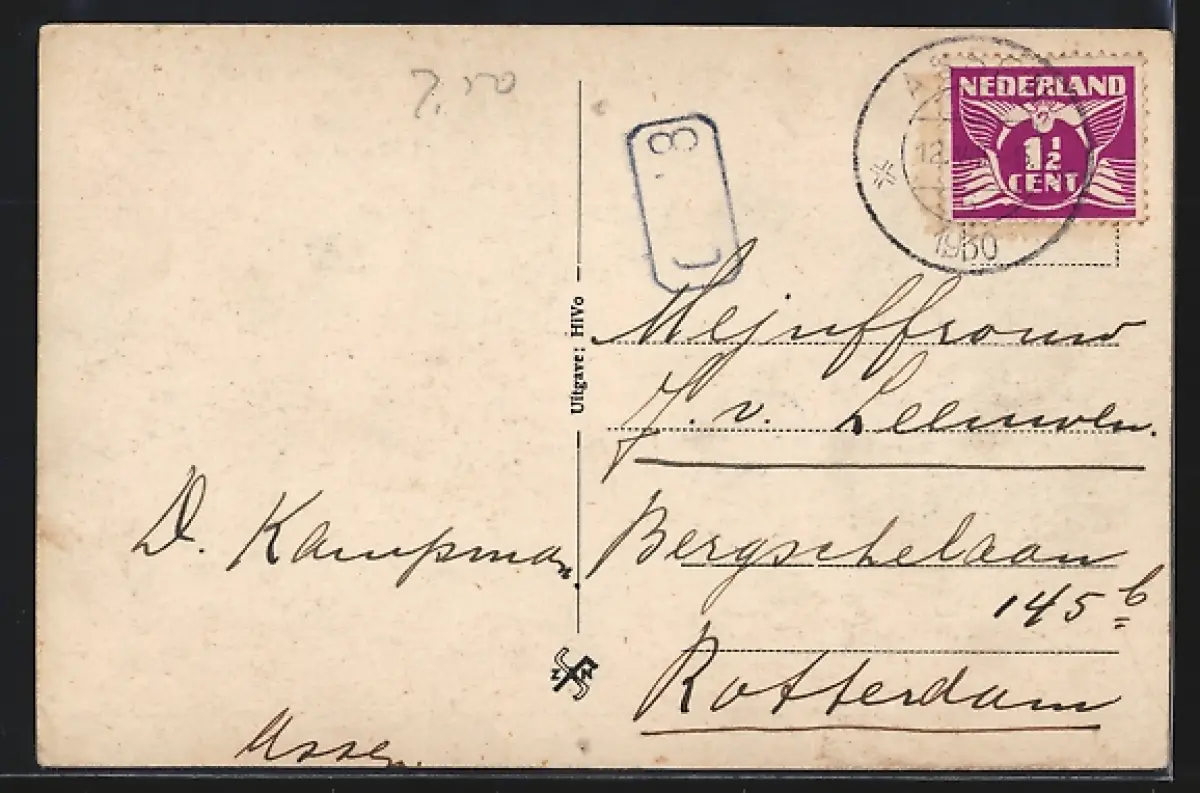 7,50
NEDERLAND
1½
CENT
1930
Uitgave: HiVo
Mejuffrouw
J. v. Leeuwen.
Bergschelaan
145 b
Rotterdam
D. Kampman.
Z N
Assen.